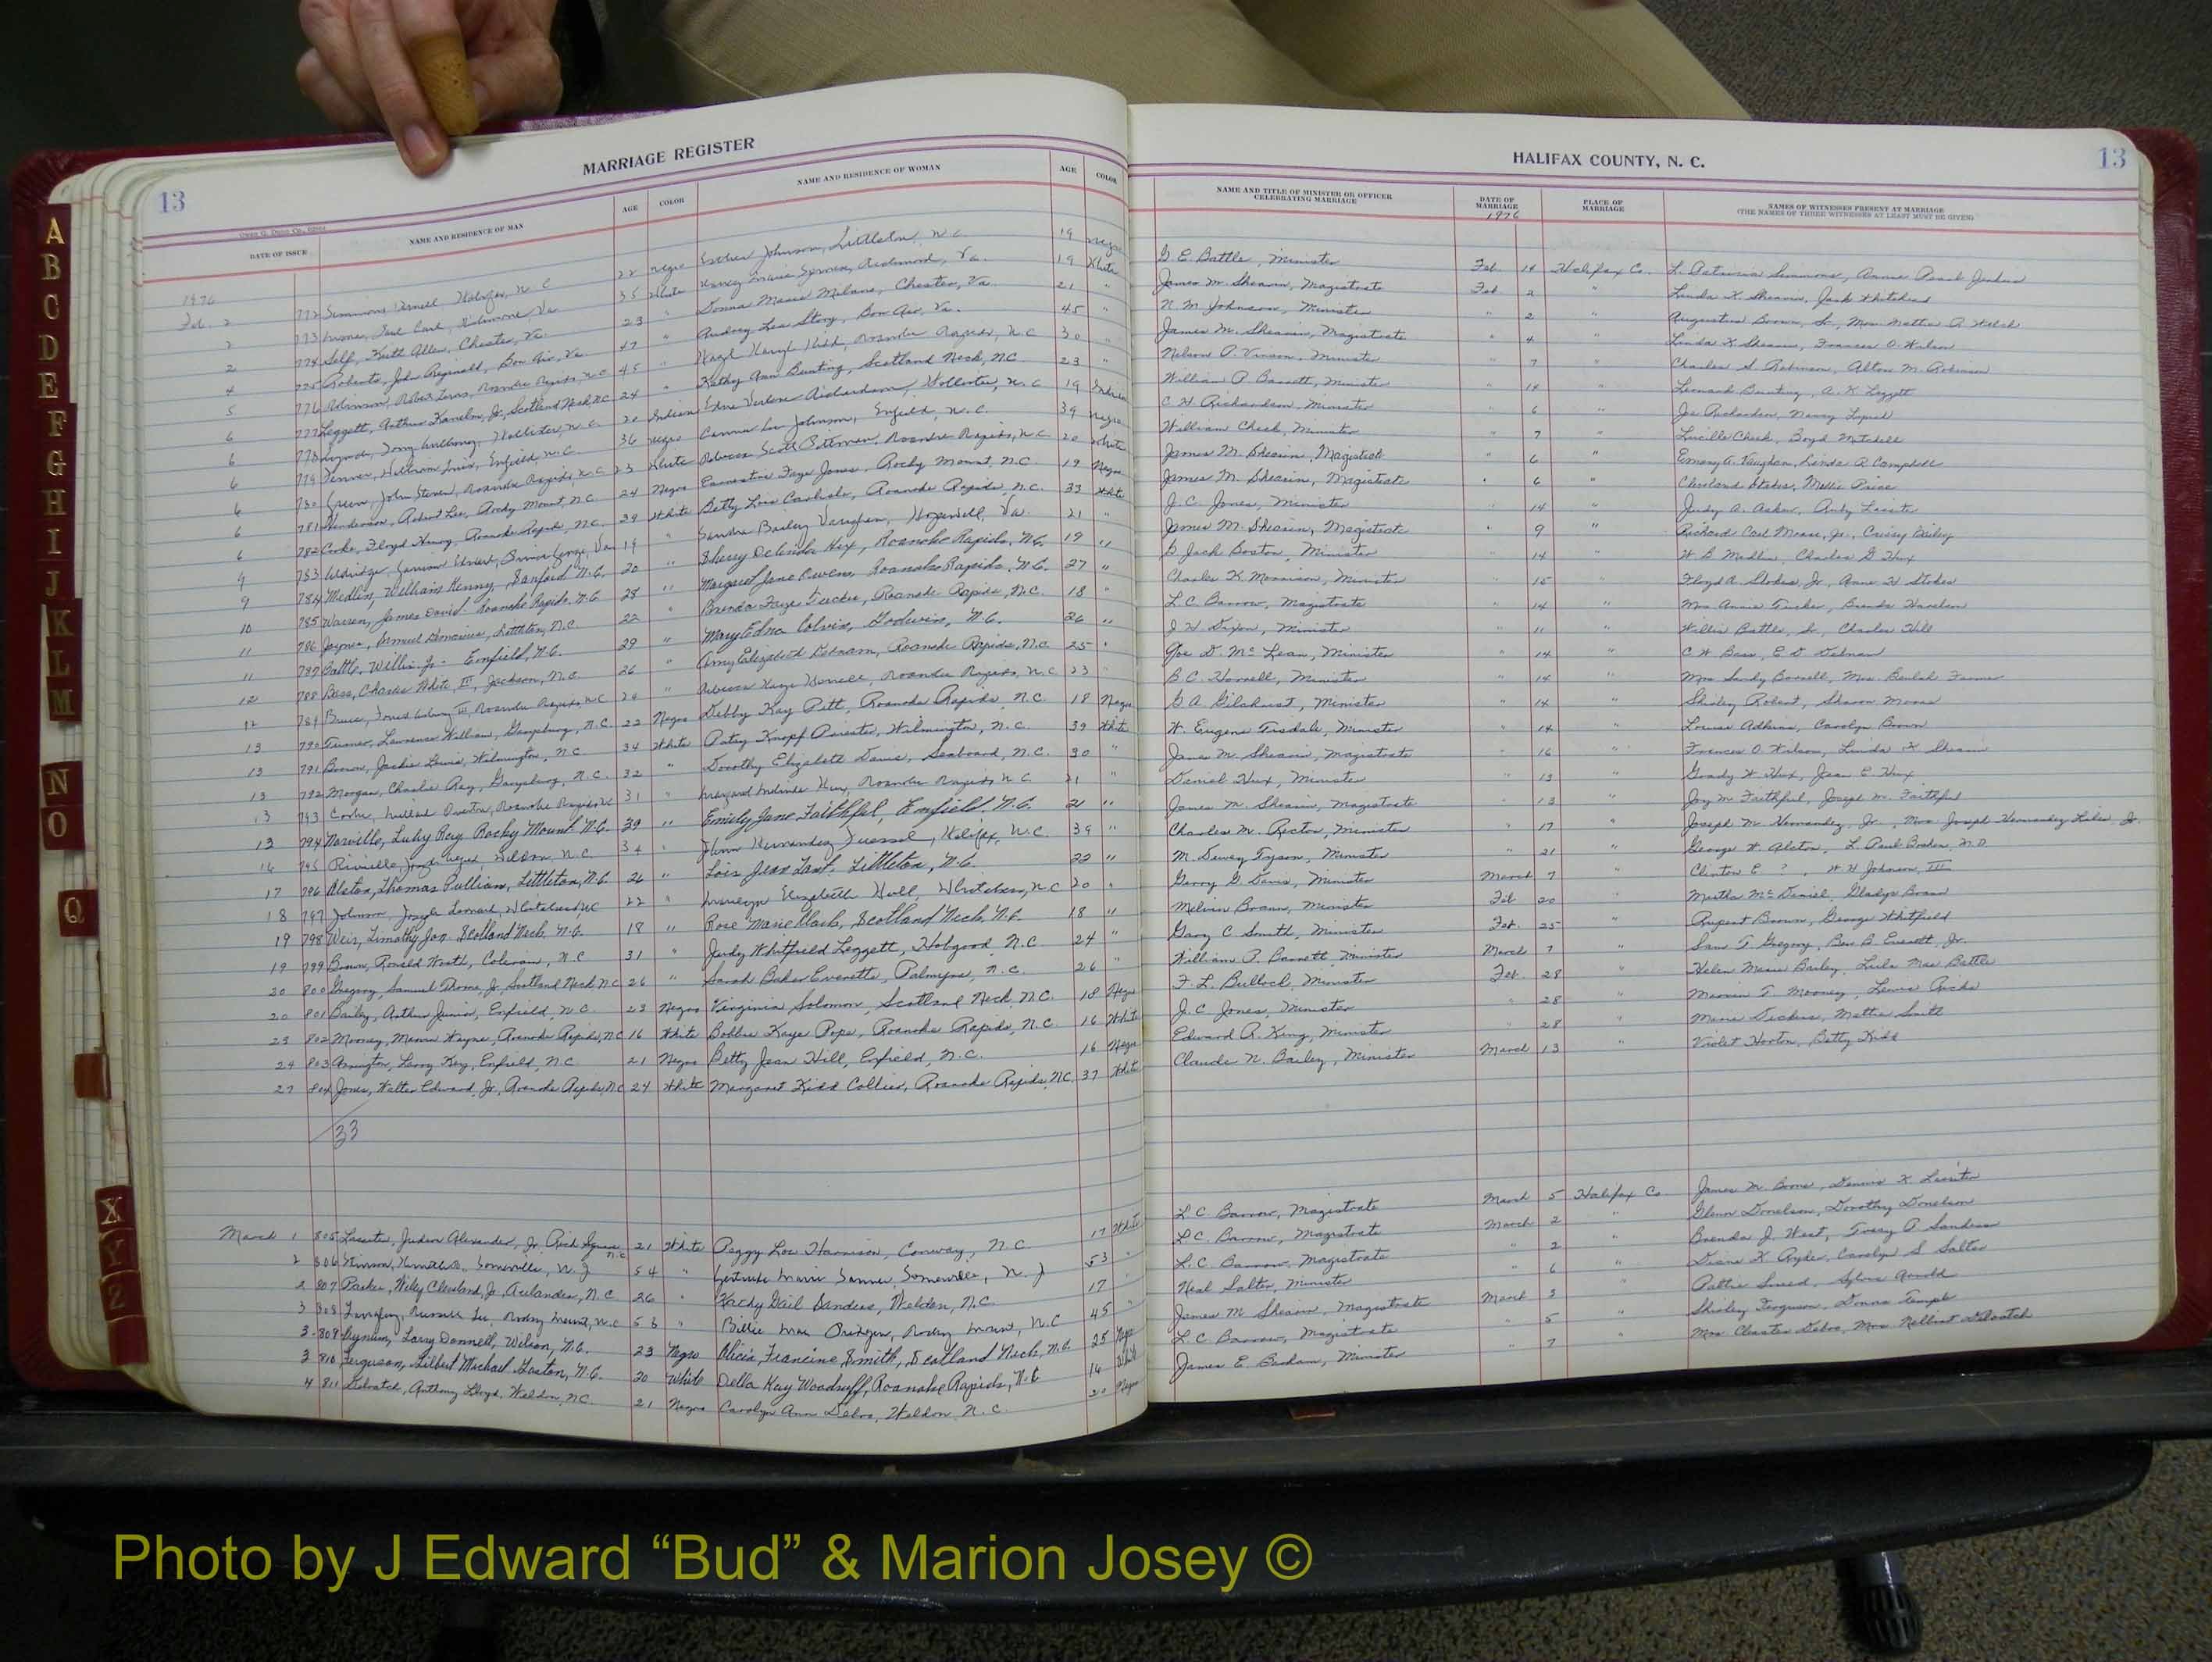 13
MARRIAGE REGISTER
DATE OF ISSUE NAME AND RESIDENCE OF MAN AGE COLOR NAME AND RESIDENCE OF WOMAN AGE COLOR
1976
Feb. 2 772 Simmons Halifax, N.C. 22 Negro Johnson, Littleton, N.C. 19 Negro
2 773 35 White Richmond, Va. 19 White
2 774 Self, Keith Allen, Chester, Va. 23 " Donna Marie Milans, Chester, Va. 21 "
4 775 Roberts, John Reginald, Bon Air, Va. 47 " Audrey Lee Story, Bon Air, Va. 45 "
5 776 Robinson, Roanoke Rapids, N.C. 45 " Hazel Roanoke Rapids, N.C. 30 "
6 777 Leggett, Arthur Jr, Scotland Neck, N.C. 24 " Kathy Ann Bunting, Scotland Neck, N.C. 23 "
6 778 Hollister, N.C. 20 Indian Edna Verlene Richardson, Hollister, N.C. 19 Indian
6 779 Enfield, N.C. 36 Negro Lee Johnson, Enfield, N.C. 39 Negro
6 780 Green, John Steven, Roanoke Rapids, N.C. 23 White Rebecca Scott Pittman, Roanoke Rapids, N.C. 20 White
6 781 Henderson, Robert Lee, Rocky Mount, N.C. 24 Negro Earnestine Faye Jones, Rocky Mount, N.C. 19 Negro
6 782 Cooke, Floyd Henry, Roanoke Rapids, N.C. 39 White Betty Lois Carlisle, Roanoke Rapids, N.C. 33 White
9 783 19 " Sandra Bailey Vaughan, Hopewell, Va. 21 "
9 784 Medlin, William Henry, Sanford, N.C. 20 " Sherry Delinda Hux, Roanoke Rapids, N.C. 19 "
10 785 Warren, James David, Roanoke Rapids, N.C. 28 " Margaret Jane Owens, Roanoke Rapids, N.C. 27 "
11 786 Littleton, N.C. 22 " Brenda Faye Tucker, Roanoke Rapids, N.C. 18 "
11 787 Battle, Willie, Jr. Enfield, N.C. 29 " Mary Edna Colvin, Godwin, N.C. 26 "
12 788 Bass, Charlie White III, Jackson, N.C. 26 " Amy Elizabeth Debnam, Roanoke Rapids, N.C. 25 "
12 789 III, Roanoke Rapids, N.C. 24 " Rebecca Kaye Roanoke Rapids, N.C. 23
13 790 Turner, Lawrence William, Garysburg, N.C. 22 Negro Debby Kay Pitt, Roanoke Rapids, N.C. 18 Negro
13 791 Brown, Jackie Lewis, Wilmington, N.C. 34 White Patsy Knopf Wilmington, N.C. 39 White
13 792 Morgan, Charlie Ray, Garysburg, N.C. 32 " Dorothy Elizabeth Davis, Seaboard, N.C. 30 "
13 793 Roanoke Rapids, N.C. 31 " Hux, Roanoke Rapids, N.C. 21 "
13 794 Norville, Luby Ray, Rocky Mount, N.C. 39 " Emily Jane Faithful, Enfield, N.C. 21 "
16 795 Weldon, N.C. 34 " Hernandez Halifax, N.C. 39 "
17 796 Alston, Thomas Pullian, Littleton, N.C. 26 " Lois Jean Littleton, N.C. 22 "
18 797 Johnson, Joseph Leonard, Whitakers, N.C. 22 " Elizabeth Hall, Whitakers, N.C. 20 "
19 798 Weir, Timothy Jon, Scotland Neck, N.C. 18 " Rose Marie Clark, Scotland Neck, N.C. 18 "
19 799 Brown, Ronald Worth, N.C. 31 " Judy Whitfield Leggett, Hobgood, N.C. 24 "
20 800 Gregory, Samuel Thorne, Jr. Scotland Neck, N.C. 26 " Sarah Baker Everette, Palmyra, N.C. 26 "
20 801 Bailey, Arthur Junior, Enfield, N.C. 23 Negro Virginia Solomon, Scotland Neck, N.C. 18 Negro
23 802 Mooney, Wayne, Roanoke Rapids, N.C. 16 White Bobbie Kaye Pope, Roanoke Rapids, N.C. 16 White
24 803 Arrington, Leroy Key, Enfield, N.C. 21 Negro Betty Jean Hill, Enfield, N.C. 16 Negro
27 804 Jones, Walter Edward, Jr, Roanoke Rapids, N.C. 24 White Margaret Kidd Collier, Roanoke Rapids, N.C. 37 White
33
March 1 805 Lassiter, Alexander, Jr. Rich Square N.C. 21 White Peggy Lou Harrison, Conway, N.C. 17 White
2 806 Somerville, N.J. 54 " Gertrude Marie Somerville, N.J. 53 "
2 807 Parker, Wiley Cleveland, Jr, Aulander, N.C. 26 " Kathy Gail Sanders, Weldon, N.C. 17 "
3 808 Rocky Mount, N.C. 53 " Billie Mae Rocky Mount, N.C. 45 "
3 809 Bynum, Larry Donnell, Wilson, N.C. 23 Negro Alicia Francine Smith, Scotland Neck, N.C. 25 Negro
3 810 Ferguson, Gilbert Michael, Gaston, N.C. 20 White Della Kay Woodruff, Roanoke Rapids, N.C. 16 White
4 811 Anthony Lloyd, Weldon, N.C. 21 Negro Carolyn Ann Weldon, N.C. 20 Negro
HALIFAX COUNTY, N. C.
13
NAME AND TITLE OF MINISTER OR OFFICER CELEBRATING MARRIAGE DATE OF MARRIAGE PLACE OF MARRIAGE NAMES OF WITNESSES PRESENT AT MARRIAGE (THE NAMES OF THREE WITNESSES AT LEAST MUST BE GIVEN)
1976
G. E. Battle, Minister Feb. 14 Halifax Co. Simmons, Annie Pearl
James M. Shearin, Magistrate Feb 2 " Linda K. Shearin, Jack
N. M. Johnson, Minister " 2 " Augustus Brown, Sr, Mrs. Mattie
James M. Shearin, Magistrate " 4 " Linda K Shearin, Frances O. Wilson
Nelson P. Vinson, Minister " 7 " Charles S Robinson, Alton M. Robinson
William P Barrett, Minister " 14 " Leonard Bunting, A. K. Leggett
C. H. Richardson, Minister " 6 " Joe Richardson, Nancy
William Cheek, Minister " 7 " Lucille Cheek, Boyd Mitchell
James M. Shearin, Magistrate " 6 " Emory A. Vaughan, Linda R Campbell
James M. Shearin, Magistrate " 6 " Cleveland Stokes, Mellie Price
J. C. Jones, Minister " 14 " Judy A.
James M. Shearin, Magistrate " 9 " Richard Carl Moore, Jr.
G. Jack Boston, Minister " 14 " W. B. Medlin, Charles G Hux
Charles K. Morrison, Minister " 15 " Floyd A. Stokes, Jr, Anne H Stokes
L. C. Barrow, Magistrate " 14 " Mrs. Annie Tucker, Brenda
J. H. Dixon, Minister " 11 " Willie Battle, Sr., Charles Hill
Joe D. McLean, Minister " 14 " C. W. Bass, E. D. Debnam
B. C. Minister " 14 " Mrs. Sandy Mrs. Beulah
G. A. Gilchrist, Minister " 14 " Shirley Robert, Sharon Moore
W. Eugene Tisdale, Minister " 14 " Louise Adkins, Carolyn Brown
James M. Shearin, Magistrate " 16 " Frances O. Wilson, Linda K. Shearin
Daniel Hux, Minister " 13 " Grady W. Hux, Jean E. Hux
James M. Shearin, Magistrate " 13 " Joy M Faithful, Joseph M. Faithful
Charles M. Rector, Minister " 17 " Joseph M Hernandez, Jr., Mrs. Joseph Hernandez
M. Dewey Tyson, Minister " 21 " George W. Alston, L. Paul N.D.
Gerry G. Davis, Minister March 7 " Clinton E ? , W. H. Johnson, III
Melvin Minister Feb 20 " Martha McDaniel, Gladys
Gary C. Smith, Minister Feb. 25 " Rupert Brown, George Whitfield
William P. Barrett, Minister March 7 " Sam T. Gregory, Ben B. Everett, Jr.
F. L. Bullock, Minister Feb. 28 " Helen Marie Bailey, Lula Mae Battle
J. C. Jones, Minister " 28 " Marvin T. Mooney, Lewis
Edward R. King, Minister " 28 " Marie Mattie Smith
Claude N. Bailey, Minister March 13 " Violet Horton, Betty Kidd
L. C. Barrow, Magistrate March 5 Halifax Co James M. Boone, Dennis K. Lassiter
L. C. Barrow, Magistrate March 2 " Glenn Donelson, Dorothy Donelson
L. C. Barrow, Magistrate " 2 " Brenda J. West, Tracy P. Sanders
Neal Salter, Minister " 6 " Diane K. Ryder, Carolyn S. Salter
James M Shearin, Magistrate March 3 " Pattie Sylvia Arnold
L. C. Barrow, Magistrate " 5 " Shirley Ferguson, Donna Temple
James E. Minister " 7 " Mrs Chester Mrs.
A
B
C
D
E
F
G
H
I
J
K
L
M
N
O
Q
X
Y
Z
Photo by J Edward “Bud” & Marion Josey ©